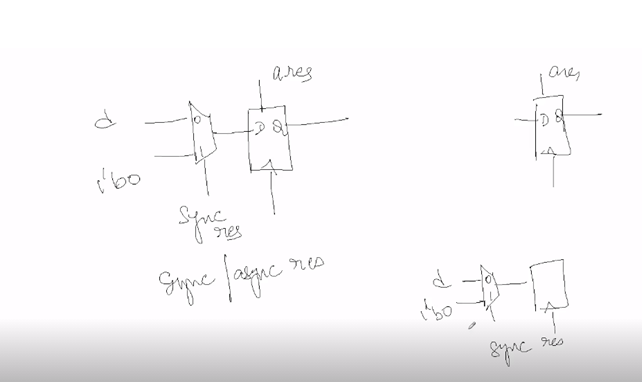 ares
d
0
D Q
1
1'b0
Sync
res
Sync/async res
ares
D Q
d
0
1'b0
sync res